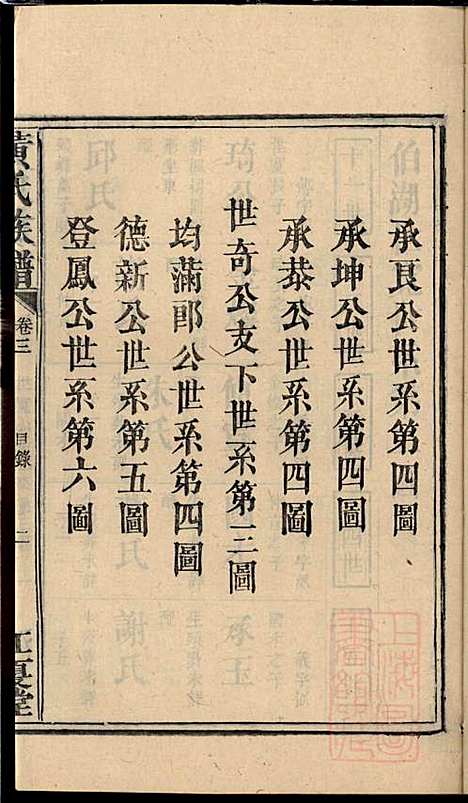 承良公世系第四圖
承坤公世系第四圖
承恭公世系第四圖
世奇公支下世系第三圖
均滿郎公世系第四圖
德新公世系第五圖
登鳳公世系第六圖
黃氏族譜
卷三
目錄
二
江夏堂